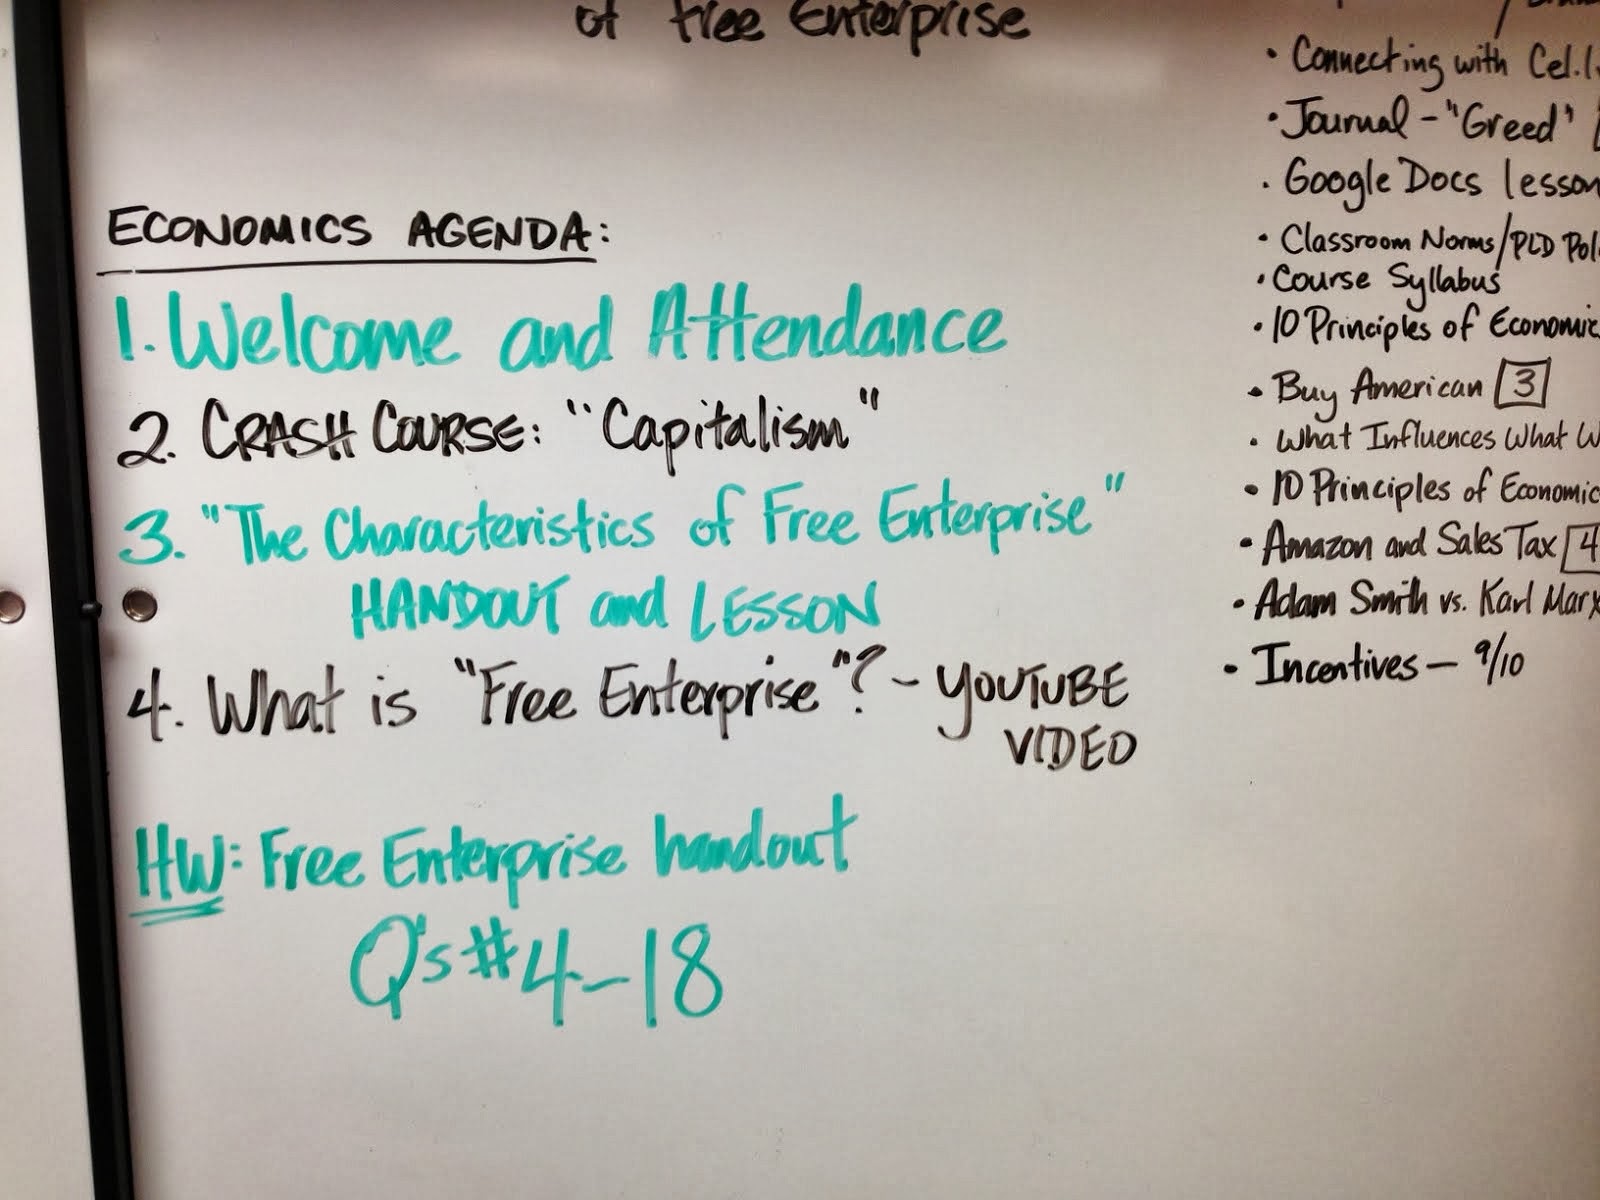 of Free Enterprise
ECONOMICS AGENDA:
1. Welcome and Attendance
2. CRASH COURSE: "Capitalism"
3. "The Characteristics of Free Enterprise"
HANDOUT and LESSON
4. What is "Free Enterprise"? - YOUTUBE
VIDEO
HW: Free Enterprise handout
Q's #4-18
• Connecting with
• Journal - "Greed"
• Google Docs lesson
• Classroom Norms/PLD
• Course Syllabus
• 10 Principles of Economic
• Buy American 3
• What Influences What
• 10 Principles of Economic
• Amazon and Sales Tax 4
• Adam Smith vs. Karl Marx
• Incentives - 9/10